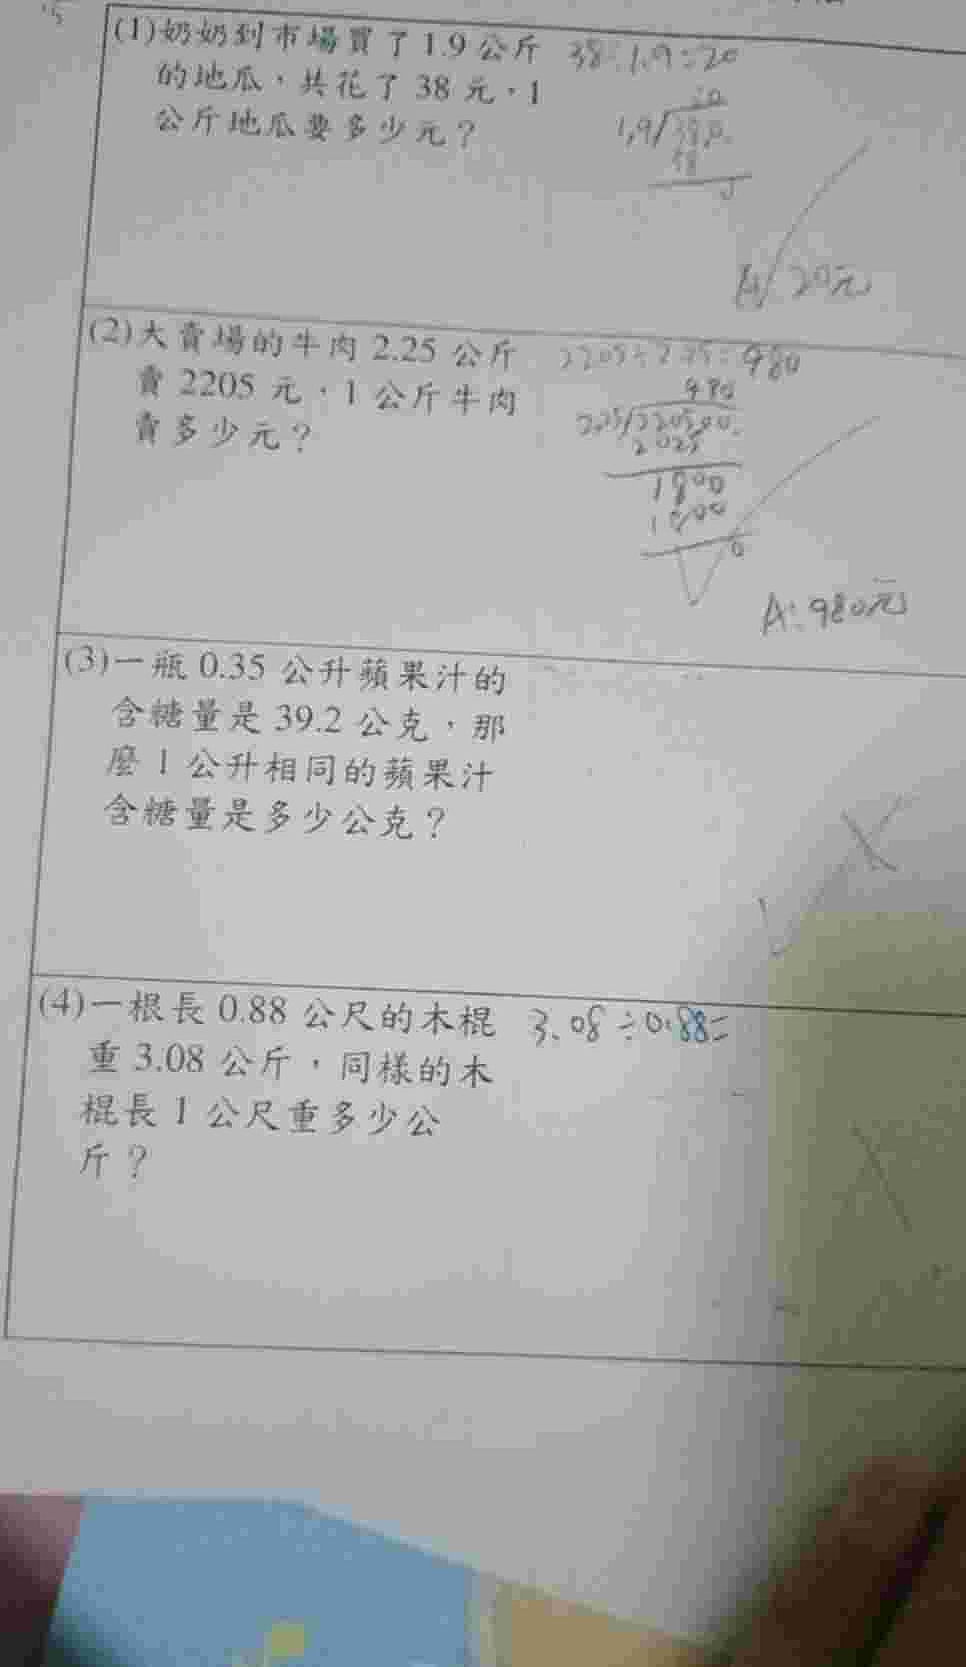 (1)奶奶到市場買了1.9公斤
的地瓜，共花了38元，1
公斤地瓜要多少元？
38÷1.9=20
20
1.9
38.0.
38
A: 20元
(2)大賣場的牛肉2.25公斤
賣2205元，1公斤牛肉
賣多少元？
2205÷2.25=980
980
2.25 220500.
2025
1800
1800
0
A:980元
(3)一瓶0.35公升蘋果汁的
含糖量是39.2公克，那
麼1公升相同的蘋果汁
含糖量是多少公克？
(4)一根長0.88公尺的木棍
重3.08公斤，同樣的木
棍長1公尺重多少公
斤？
3.08÷0.88=